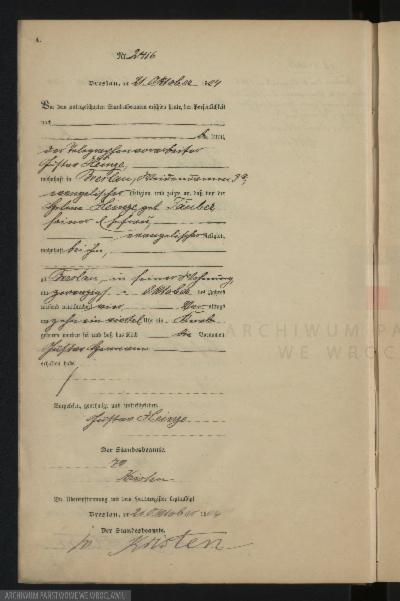 A.
Nr. 2416
Breslau, am 21. Oktober 1904
Vor dem unterzeichneten Standesbeamten erschien heute, der Persönlichkeit
nach
kannt,
der Telegraphenvorarbeiter
Gustav Heinze,
wohnhaft in Breslau,
evangelischer Religion, und zeigte an, daß von der
Helene Heinze geb. Täuber
seiner Ehefrau,
evangelischer Religion,
wohnhaft bei ihm,
zu Breslau, in seiner Wohnung,
am zwanzigsten Oktober des Jahres
tausend neunhundert vier Vormittags
um zehn ein viertel Uhr ein Knabe
geboren worden sei und daß das Kind den Vornamen
Gustav Hermann
erhalten habe.
Vorgelesen, genehmigt und unterschrieben
Gustav Heinze
Der Standesbeamte.
Kristen
Die Übereinstimmung mit dem Hauptregister beglaubigt
Breslau, am 21. Oktober 1904
Der Standesbeamte.
Kristen
ARCHIWUM P
WE WROC
ARCHIWUM PAŃSTWOWE WE WROCŁAWIU